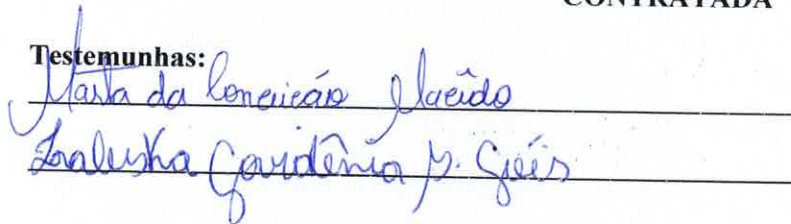 CONTRATADA
Testemunhas:
Marta da Conceição Macêdo
Gardênia P. Góis